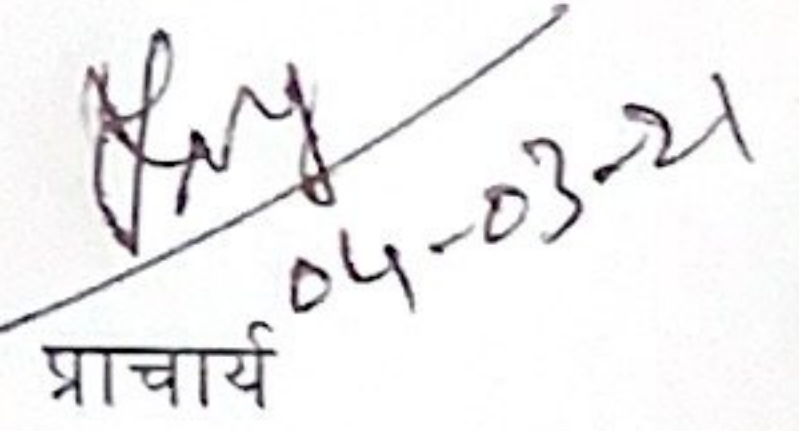 04-03-21
प्राचार्य